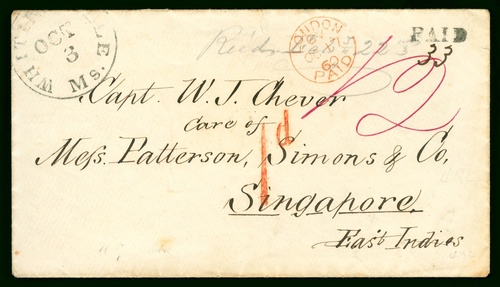 WHITE
OCT
3
Ms.
LONDON
60
PAID
PAID
33
1/2
Capt. W. J. Chever
Care of
1d
Mess. Patterson, Simons & Co,
Singapore.
East Indies